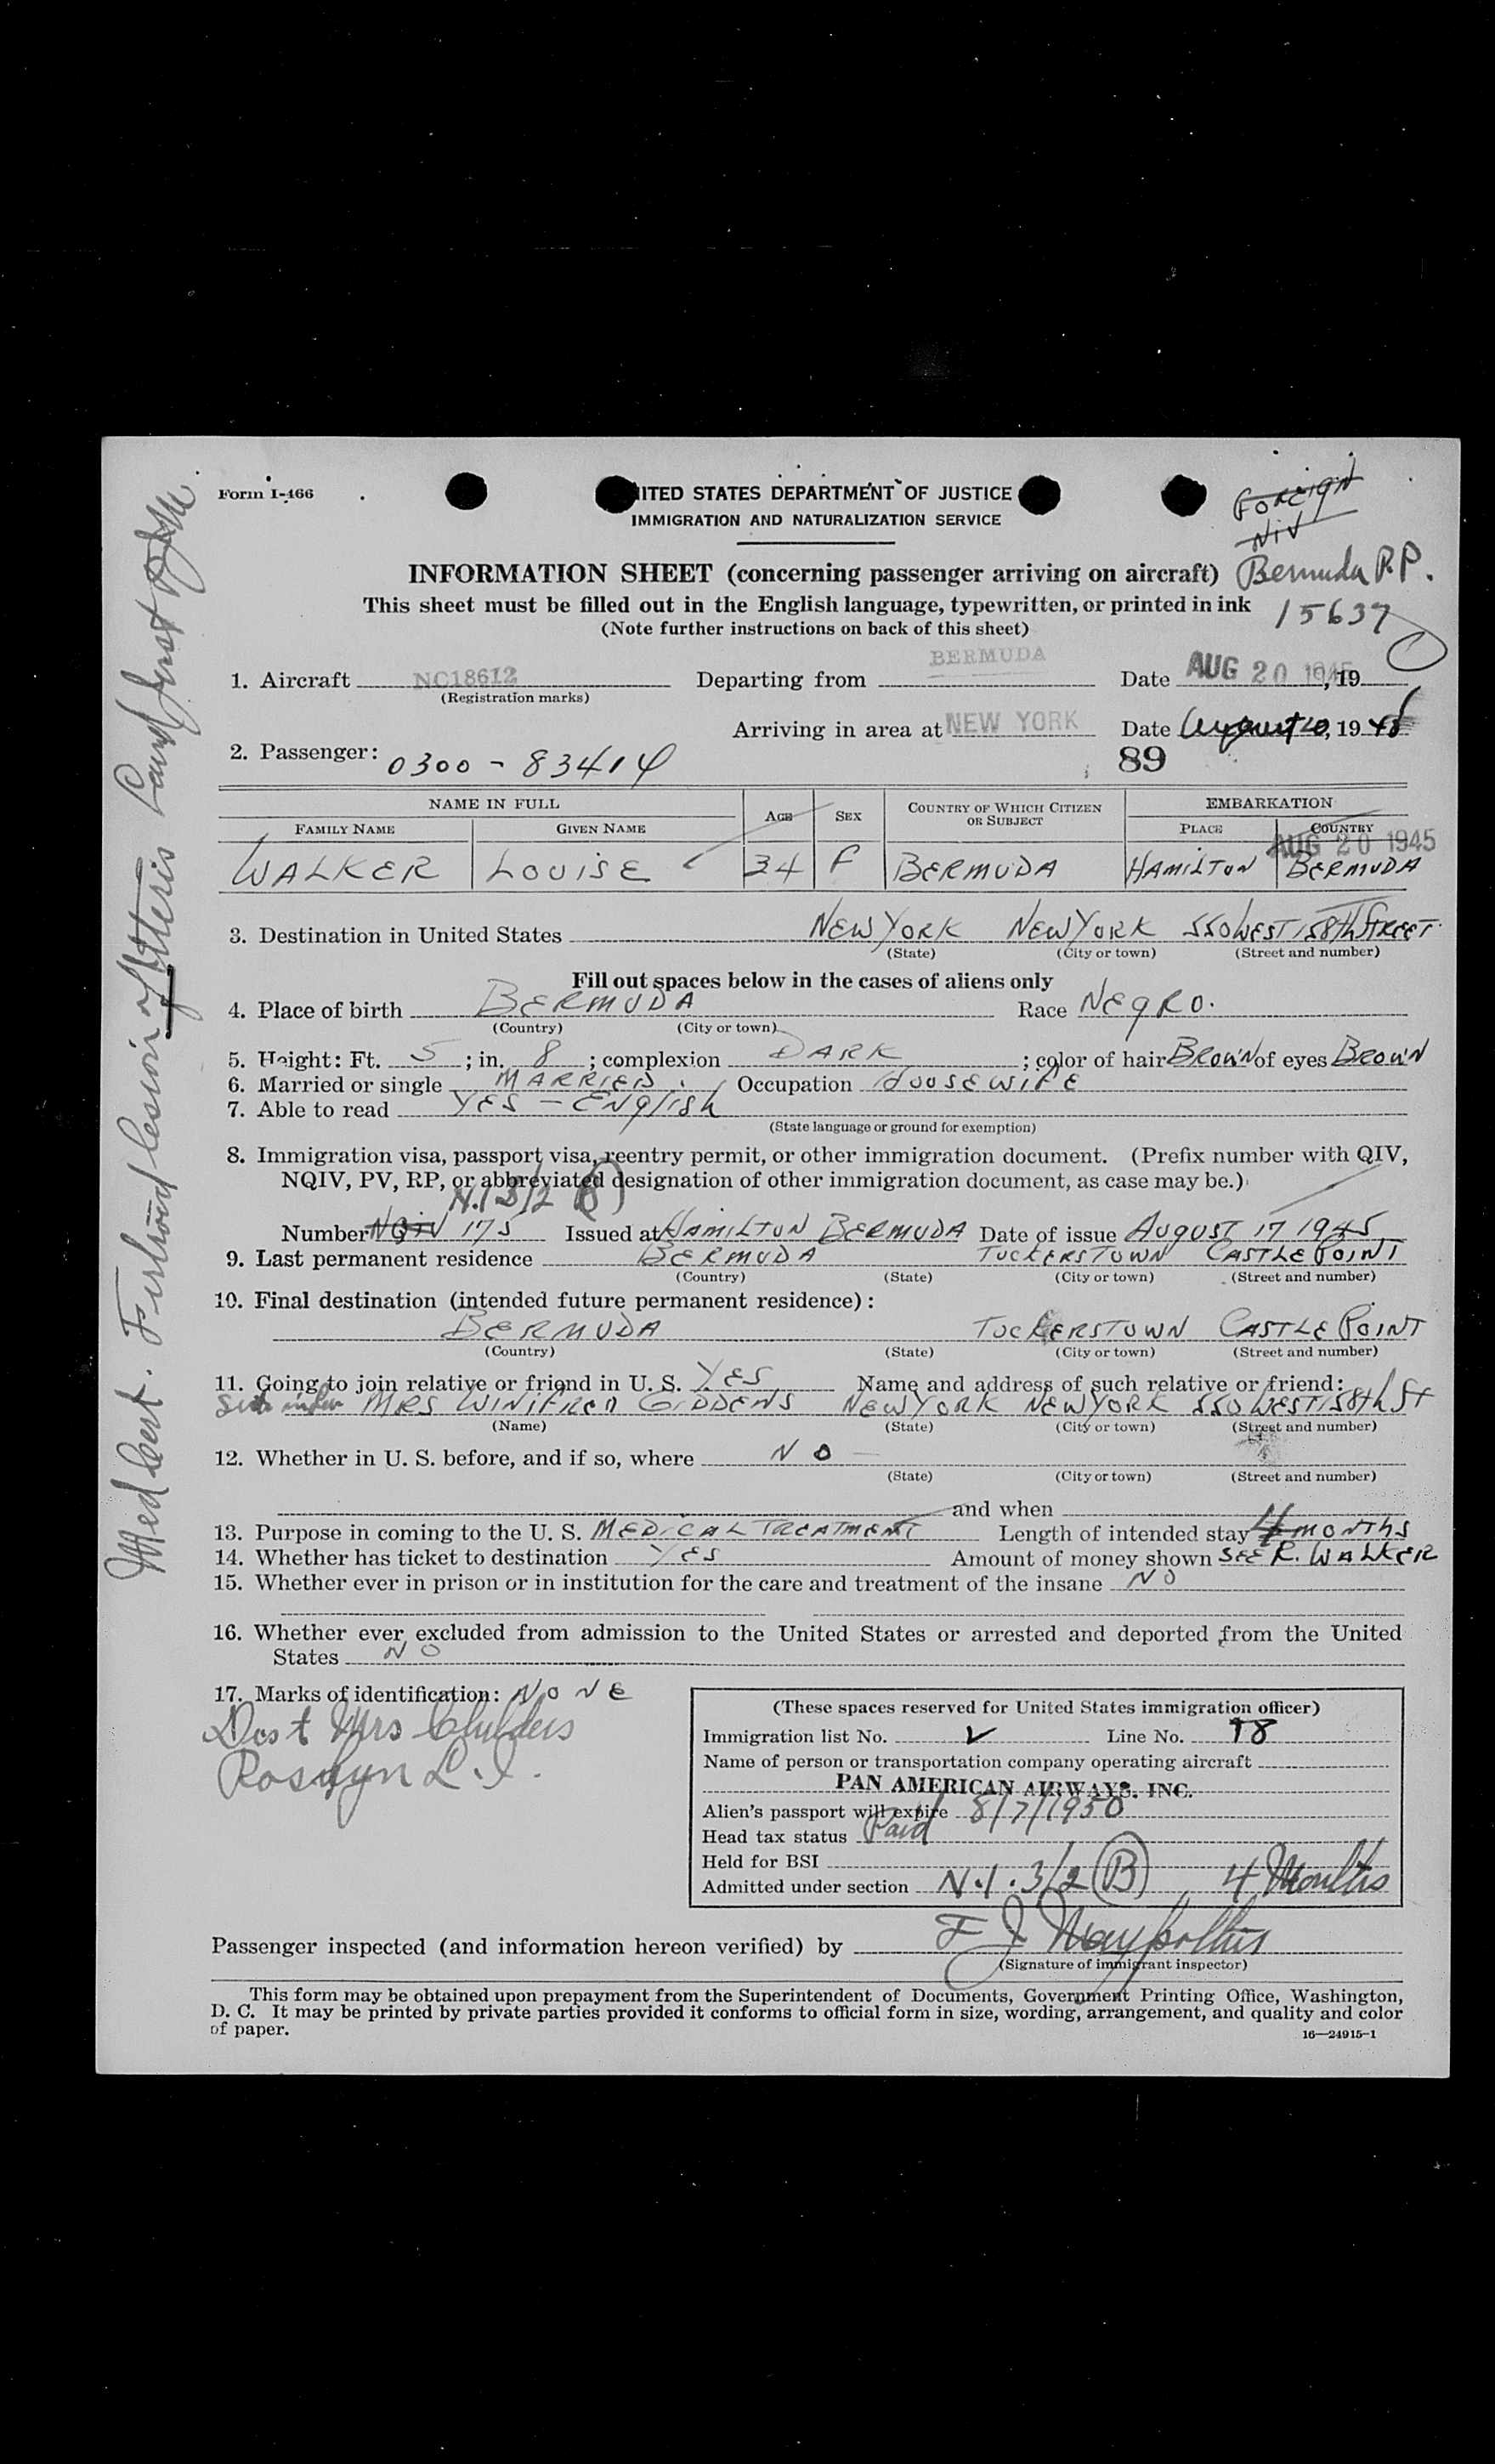 Form I-466
UNITED STATES DEPARTMENT OF JUSTICE
IMMIGRATION AND NATURALIZATION SERVICE
FOREIGN
NIV
INFORMATION SHEET (concerning passenger arriving on aircraft) Bermuda P.P.
This sheet must be filled out in the English language, typewritten, or printed in ink 15637
(Note further instructions on back of this sheet)
1. Aircraft NC18612 Departing from BERMUDA Date AUG 20 1945, 19
(Registration marks)
Arriving in area at NEW YORK Date August 20, 1945
2. Passenger: 0300 - 83414 89
NAME IN FULL AGE SEX COUNTRY OF WHICH CITIZEN OR SUBJECT EMBARKATION
FAMILY NAME GIVEN NAME PLACE COUNTRY
AUG 20 1945
WALKER LOUISE 34 F BERMUDA HAMILTON BERMUDA
3. Destination in United States NEW YORK NEW YORK 550 WEST 158th STREET
(State) (City or town) (Street and number)
Fill out spaces below in the cases of aliens only
4. Place of birth BERMUDA Race NEgRO.
(Country) (City or town)
5. Height: Ft. 5; in. 8; complexion DARK; color of hair BROWN of eyes BROWN
6. Married or single MARRIED. Occupation HOUSEWIFE
7. Able to read YES - ENglish
(State language or ground for exemption)
8. Immigration visa, passport visa, reentry permit, or other immigration document. (Prefix number with QIV,
NQIV, PV, RP, or abbreviated designation of other immigration document, as case may be.)
N.I 3/2 (B)
Number NQIV 175 Issued at HAMILTON BERMUDA Date of issue AUGUST 17 1945
9. Last permanent residence BERMUDA TUCKERSTOWN CASTLE POINT
(Country) (State) (City or town) (Street and number)
10. Final destination (intended future permanent residence):
BERMUDA TUCKERSTOWN CASTLE POINT
(Country) (State) (City or town) (Street and number)
11. Going to join relative or friend in U. S. YES Name and address of such relative or friend:
MRS WINIFRED GIDDENS NEW YORK NEW YORK 550 WEST 158th St
(Name) (State) (City or town) (Street and number)
12. Whether in U. S. before, and if so, where NO
(State) (City or town) (Street and number)
and when
13. Purpose in coming to the U. S. MEDICAL TREATMENT Length of intended stay 4 MONTHS
14. Whether has ticket to destination YES Amount of money shown SEE R. WALKER
15. Whether ever in prison or in institution for the care and treatment of the insane NO
16. Whether ever excluded from admission to the United States or arrested and deported from the United
States NO
17. Marks of identification: NONE
Dest Mrs Childers
Roslyn L.I.
(These spaces reserved for United States immigration officer)
Immigration list No. V Line No. 18
Name of person or transportation company operating aircraft
PAN AMERICAN AIRWAYS, INC.
Alien's passport will expire 8/7/1950
Head tax status Paid
Held for BSI
Admitted under section N.I. 3/2 (B) 4 Months
Passenger inspected (and information hereon verified) by F J
(Signature of immigrant inspector)
This form may be obtained upon prepayment from the Superintendent of Documents, Government Printing Office, Washington,
D. C. It may be printed by private parties provided it conforms to official form in size, wording, arrangement, and quality and color
of paper.
16—24915-1
Med Cert. Fibroid lesion of Uterus